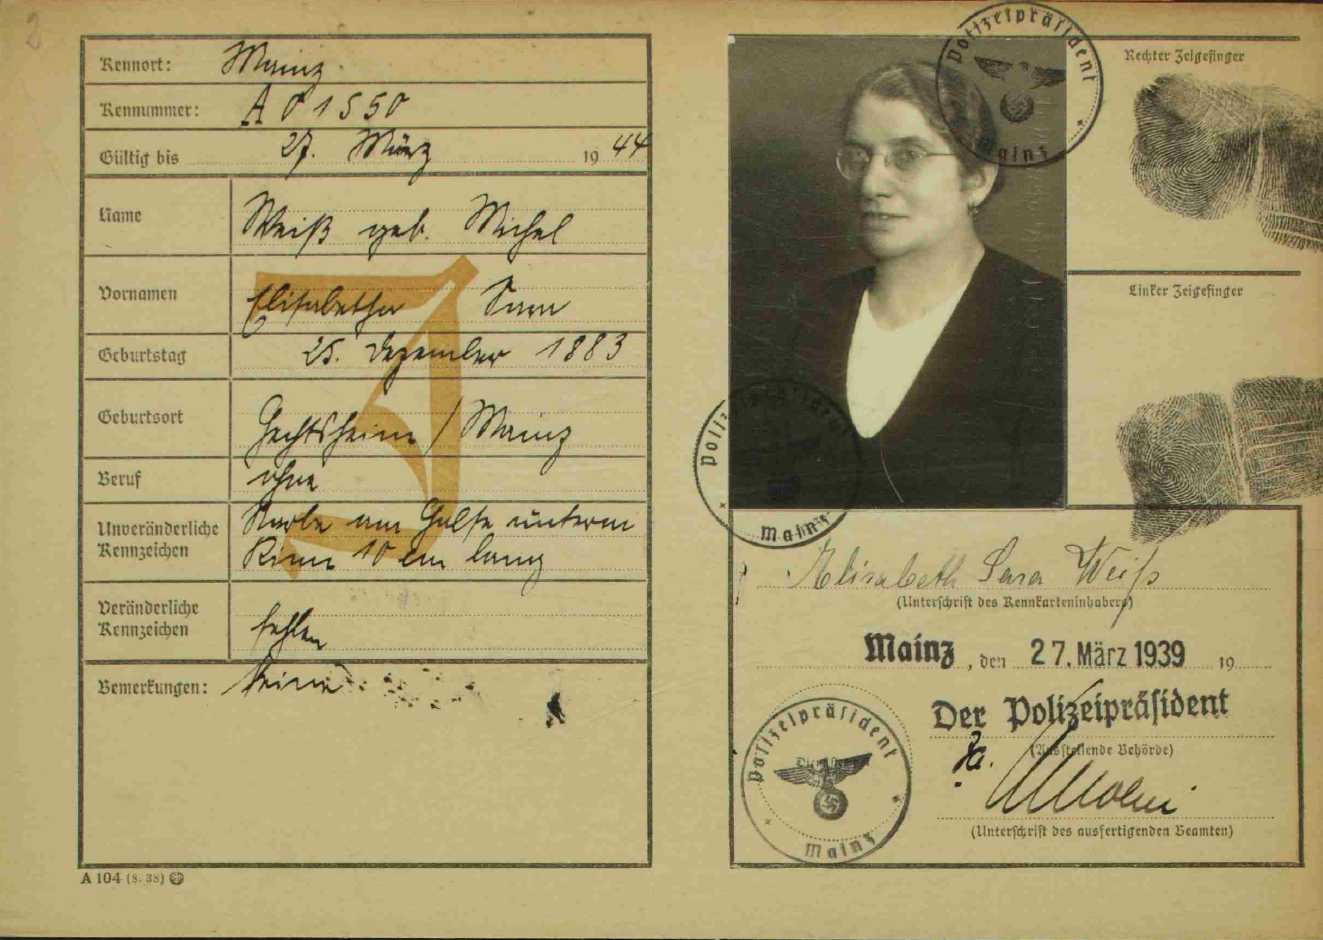 Kennort: Mainz
Kennummer: A 01550
Gültig bis 27. März 1944
Name Weiß geb. Michel
Vornamen Elisabetha Sara
Geburtstag 25. Dezember 1883
Geburtsort Hechtsheim / Mainz
Beruf ohne
Unveränderliche Kennzeichen Narbe am Halse unterm
Kinn 10 cm lang
Veränderliche Kennzeichen fehlen
Bemerkungen: keine
J
A 104 (8. 38)
Polizeipräsident
Mainz
Rechter Zeigefinger
Linker Zeigefinger
Polizeipräsident
Mainz
Elisabeth Sara Weiß
(Unterschrift des Kennkarteninhabers)
Mainz, den 27. März 1939 19
Der Polizeipräsident
(Ausstellende Behörde)
(Unterschrift des ausfertigenden Beamten)
Polizeipräsident
Mainz